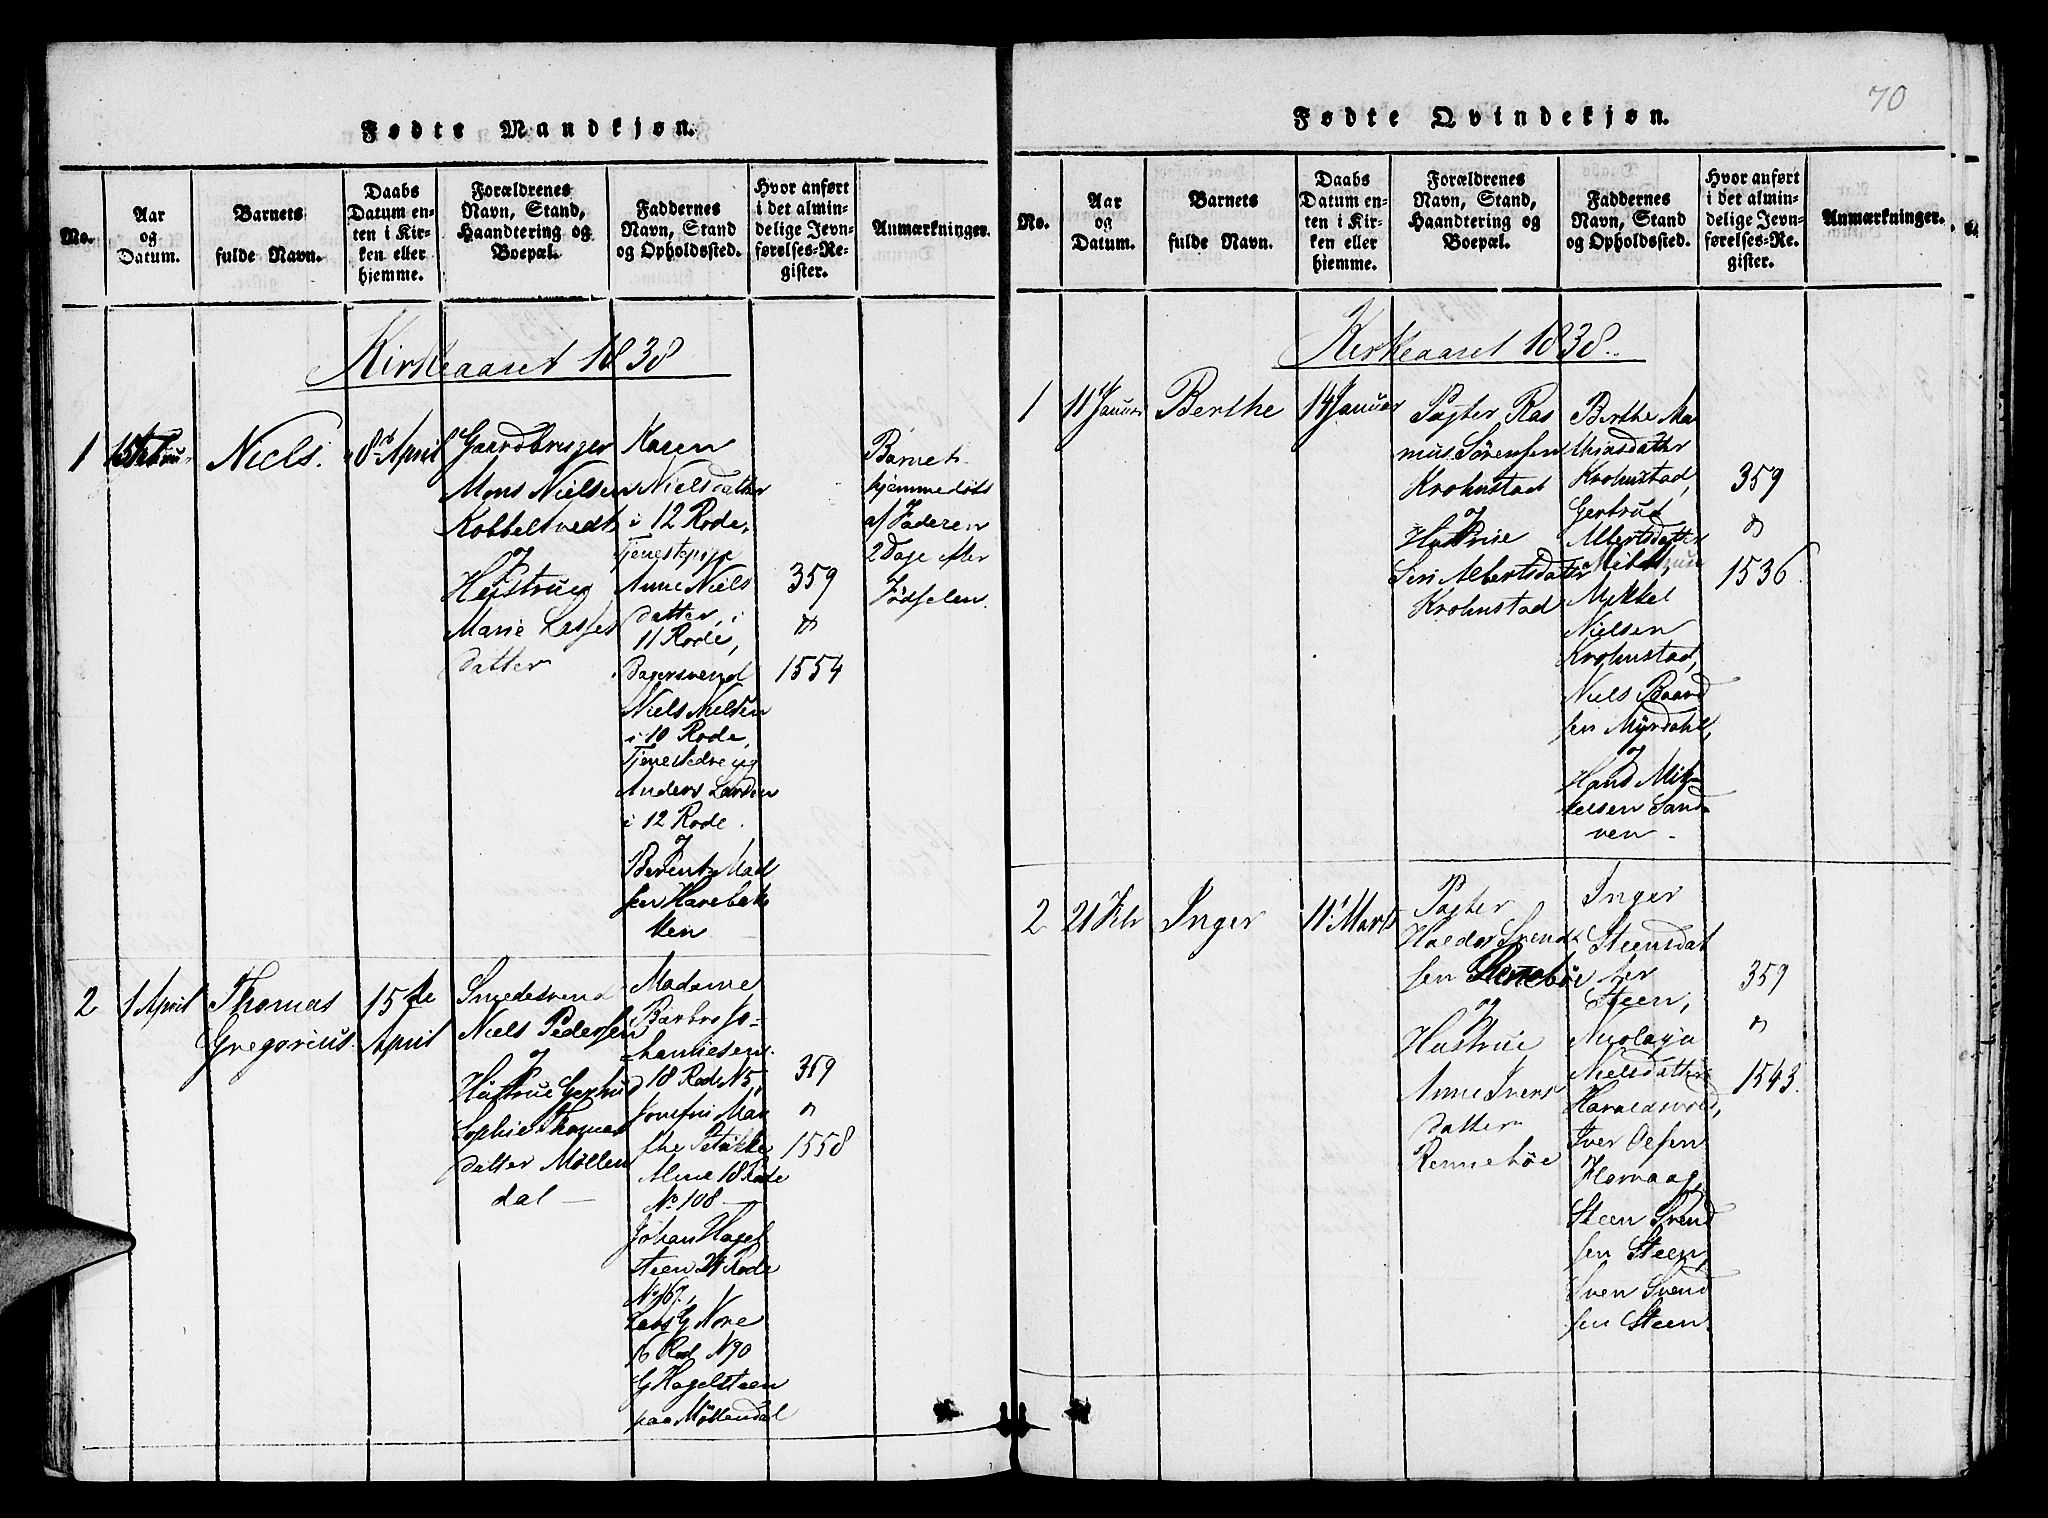 Fødte Mandkjøn.
No.
Aar
og
Datum.
Barnets
fulde Navn.
Daabs
Datum en-
ten i Kir-
ken eller
hjemme.
Forældrenes
Navn, Stand,
Haandtering og
Boepæl.
Faddernes
Navn, Stand
og Opholdssted.
Hvor anført
i det almin-
delige Jevn-
førelses-Re-
gister.
Anmærkninger.
Kirkeaaret 1838
1
Niels.
8de April
Gaardbruger
Mons Nielsen
Kobbeltvedt
og
Hustrue
Marie Lasses
datter
Karen
Nielsdatter
i 12 Rode,
Tjenestepige
Anne Niels
datter, i
11 Rode,
Bagersvend
Niels Nielsen
i 10 Rode,
Tjenestedreng
Anders Larsen
i 12 Rode.
og
Berent Mad
sen Harebak
ken
359
&
1554
Barnet
hjemmedøbt
af Faderen
2 Dage efter
Fødselen.
2
1 April
Thomas
Gregorius.
15de
April
Smedesvend
Niels Pedersen
og
Hustrue Gertrud
Sophie Thomas
datter Møllen
dal
Madame
Barbro Jo-
hannesen
18 Rode N 5,
Josefni Mar
the
18 Rode
No 108
Johan Hagel
steen 24 Rode
No 167,
16 Rod N 90
G Hagelsteen
paa Møllendal
359
&
1558
70
Fødte Qvindekjøn.
No.
Aar
og
Datum.
Barnets
fulde Navn.
Daabs
Datum en-
ten i Kir-
ken eller
hjemme.
Forældrenes
Navn, Stand,
Haandtering og
Boepæl.
Faddernes
Navn, Stand
og Opholdssted.
Hvor anført
i det almin-
delige Jevn-
førelses-Re-
gister.
Anmærkninger.
Kirkeaaret 1838.
1
11 Januar
Berthe
14 Januar
Pagter Ras
mus Sørensen
Krohnstad
og
Hustrue
Siri Albertsdatter
Krohnstad
Berthe Ma
thiasdatter
Krohnstad,
Gertrud
Albertsdatter
Mikkel
Nielsen
Krohnstad,
Niels Baard
sen Myrdahl,
og
Hans Mik-
kelsen Sand
ven
359
&
1536.
2
21 Febr
Inger
11 Marts
Pagter
Haldor Svend
sen Rennebøe
og
Hustrue
Anne Ivers
datter
Rennebøe
Inger
Steensdat
ter
Steen,
Nicolaja
Nielsdatter
Haraldsvold,
Iver Olsen
Hornaas,
Steen Svend
sen Steen,
Sven Svend
sen Steen.
359
&
1543.